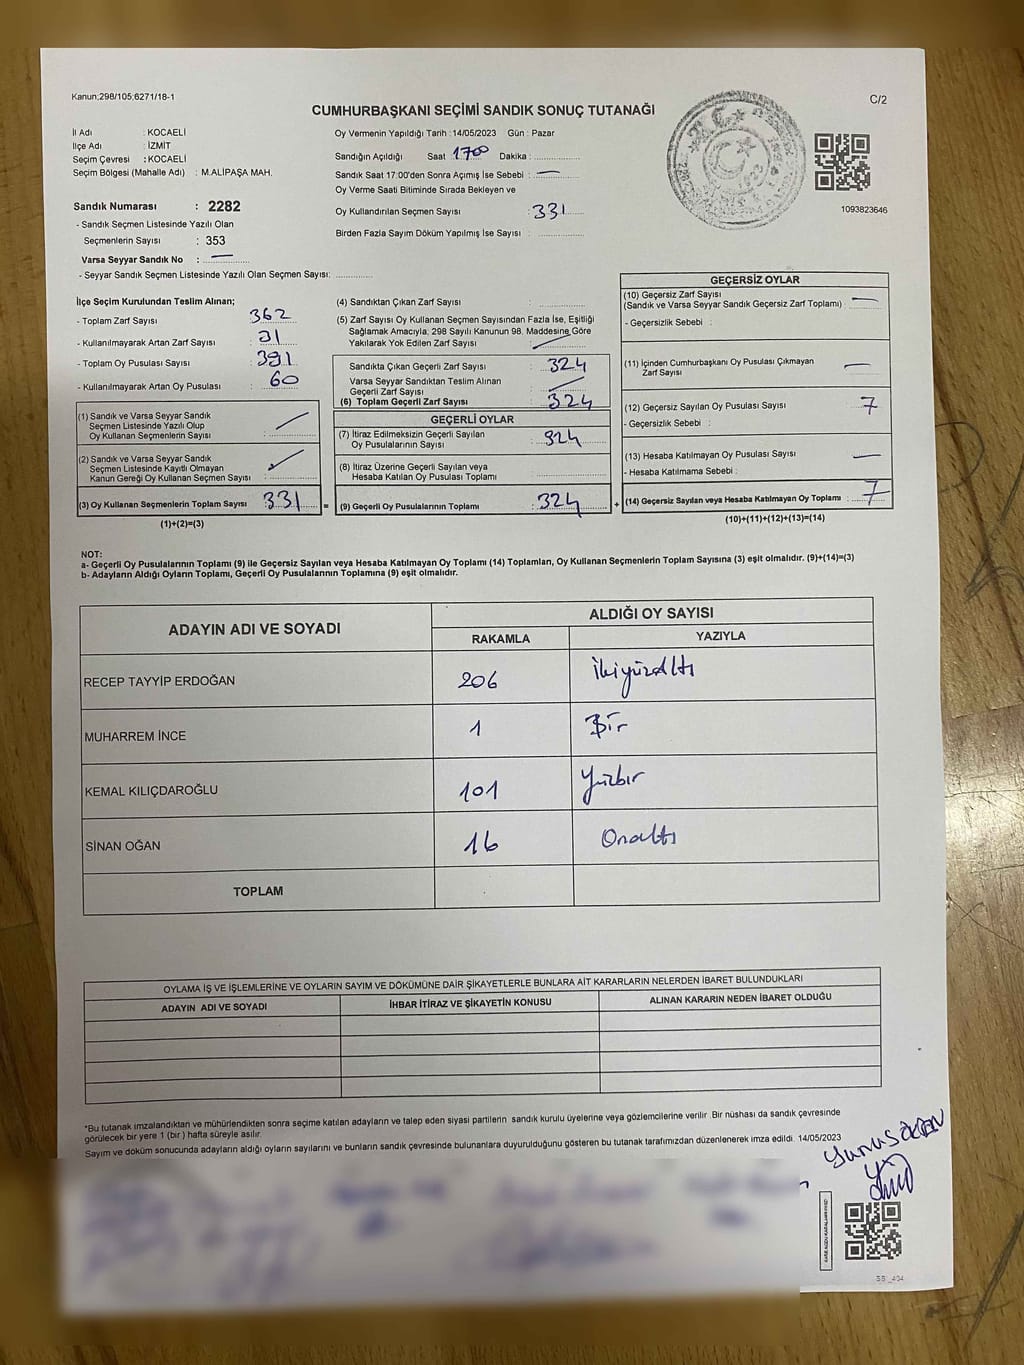 Kanun;298/105;6271/18-1
C/2
CUMHURBAŞKANI SEÇİMİ SANDIK SONUÇ TUTANAĞI
İl Adı : KOCAELİ
İlçe Adı : İZMİT
Seçim Çevresi : KOCAELİ
Seçim Bölgesi (Mahalle Adı) : M.ALİPAŞA MAH.
Sandık Numarası : 2282
- Sandık Seçmen Listesinde Yazılı Olan
Seçmenlerin Sayısı : 353
Varsa Seyyar Sandık No : —
- Seyyar Sandık Seçmen Listesinde Yazılı Olan Seçmen Sayısı: ..............
Oy Vermenin Yapıldığı Tarih : 14/05/2023 Gün : Pazar
Sandığın Açıldığı Saat 1700 Dakika : ..............
Sandık Saat 17:00'den Sonra Açımış İse Sebebi : —
Oy Verme Saati Bitiminde Sırada Bekleyen ve
Oy Kullandırılan Seçmen Sayısı : 331
Birden Fazla Sayım Döküm Yapılmış İse Sayısı : ..............
1093823646
İlçe Seçim Kurulundan Teslim Alınan;
- Toplam Zarf Sayısı : 362
- Kullanılmayarak Artan Zarf Sayısı : 31
- Toplam Oy Pusulası Sayısı : 391
- Kullanılmayarak Artan Oy Pusulası : 60
(1) Sandık ve Varsa Seyyar Sandık
Seçmen Listesinde Yazılı Olup
Oy Kullanan Seçmenlerin Sayısı :
(2) Sandık ve Varsa Seyyar Sandık
Seçmen Listesinde Kayıtlı Olmayan
Kanun Gereği Oy Kullanan Seçmen Sayısı :
(3) Oy Kullanan Seçmenlerin Toplam Sayısı : 331 =
(1)+(2)=(3)
(4) Sandıktan Çıkan Zarf Sayısı :
(5) Zarf Sayısı Oy Kullanan Seçmen Sayısından Fazla İse, Eşitliği
Sağlamak Amacıyla; 298 Sayılı Kanunun 98. Maddesine Göre
Yakılarak Yok Edilen Zarf Sayısı :
Sandıkta Çıkan Geçerli Zarf Sayısı : 324
Varsa Seyyar Sandıktan Teslim Alınan
Geçerli Zarf Sayısı :
(6) Toplam Geçerli Zarf Sayısı : 324
GEÇERLİ OYLAR
(7) İtiraz Edilmeksizin Geçerli Sayılan
Oy Pusulalarının Sayısı : 324
(8) İtiraz Üzerine Geçerli Sayılan veya
Hesaba Katılan Oy Pusulası Toplamı :
(9) Geçerli Oy Pusulalarının Toplamı : 324 +
GEÇERSİZ OYLAR
(10) Geçersiz Zarf Sayısı
(Sandık ve Varsa Seyyar Sandık Geçersiz Zarf Toplamı) : —
- Geçersizlik Sebebi :
(11) İçinden Cumhurbaşkanı Oy Pusulası Çıkmayan
Zarf Sayısı : —
(12) Geçersiz Sayılan Oy Pusulası Sayısı : 7
- Geçersizlik Sebebi :
(13) Hesaba Katılmayan Oy Pusulası Sayısı : —
- Hesaba Katılmama Sebebi :
(14) Geçersiz Sayılan veya Hesaba Katılmayan Oy Toplamı : 7
(10)+(11)+(12)+(13)=(14)
NOT:
a- Geçerli Oy Pusulalarının Toplamı (9) ile Geçersiz Sayılan veya Hesaba Katılmayan Oy Toplamı (14) Toplamları, Oy Kullanan Seçmenlerin Toplam Sayısına (3) eşit olmalıdır. (9)+(14)=(3)
b- Adayların Aldığı Oyların Toplamı, Geçerli Oy Pusulalarının Toplamına (9) eşit olmalıdır.
ADAYIN ADI VE SOYADI
ALDIĞI OY SAYISI
RAKAMLA YAZIYLA
RECEP TAYYİP ERDOĞAN 206 İkiyüzaltı
MUHARREM İNCE 1 Bir
KEMAL KILIÇDAROĞLU 101 Yüzbir
SİNAN OĞAN 16 Onaltı
TOPLAM
OYLAMA İŞ VE İŞLEMLERİNE VE OYLARIN SAYIM VE DÖKÜMÜNE DAİR ŞİKAYETLERLE BUNLARA AİT KARARLARIN NELERDEN İBARET BULUNDUKLARI
ADAYIN ADI VE SOYADI İHBAR İTİRAZ VE ŞİKAYETİN KONUSU ALINAN KARARIN NEDEN İBARET OLDUĞU
"Bu tutanak imzalandıktan ve mühürlendikten sonra seçime katılan adayların ve talep eden siyasi partilerin sandık kurulu üyelerine veya gözlemcilerine verilir .Bir nüshası da sandık çevresinde
görülecek bir yere 1 (bir ) hafta süreyle asılır.
Sayım ve döküm sonucunda adayların aldığı oyların sayılarını ve bunların sandık çevresinde bulunanlara duyurulduğunu gösteren bu tutanak tarafımızdan düzenlenerek imza edildi. 14/05/2023
Yunus